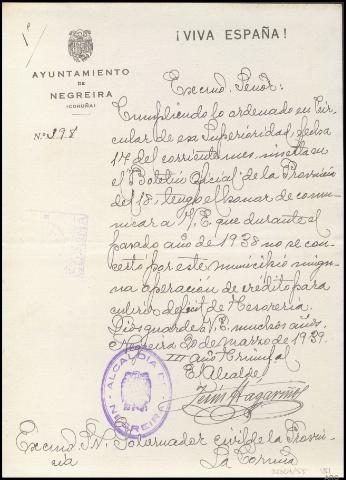 ¡VIVA ESPAÑA!
AYUNTAMIENTO
DE
NEGREIRA
(CORUÑA)
N.º 398
Excmo. Señor:
Cumpliendo lo ordenado en Cir-
cular de esa Superioridad, fecha
14 del corriente mes, inserta en
el "Boletin Oficial" de la Provincia
del 18, tengo el honor de comu-
nicar a V.E. que durante el
pasado año de 1938 no se con-
certó por este municipio ningu-
na operación de crédito para
cubrir deficit de Tesoreria.
Dios guarde a V.E. muchos años.
Negreira 20 de marzo de 1939.
III año Triunfal
El Alcalde,
ALCALDIA
NEGREIRA
Excmo. Sr. Gobernador civil de la Provin-
cia
La Coruña